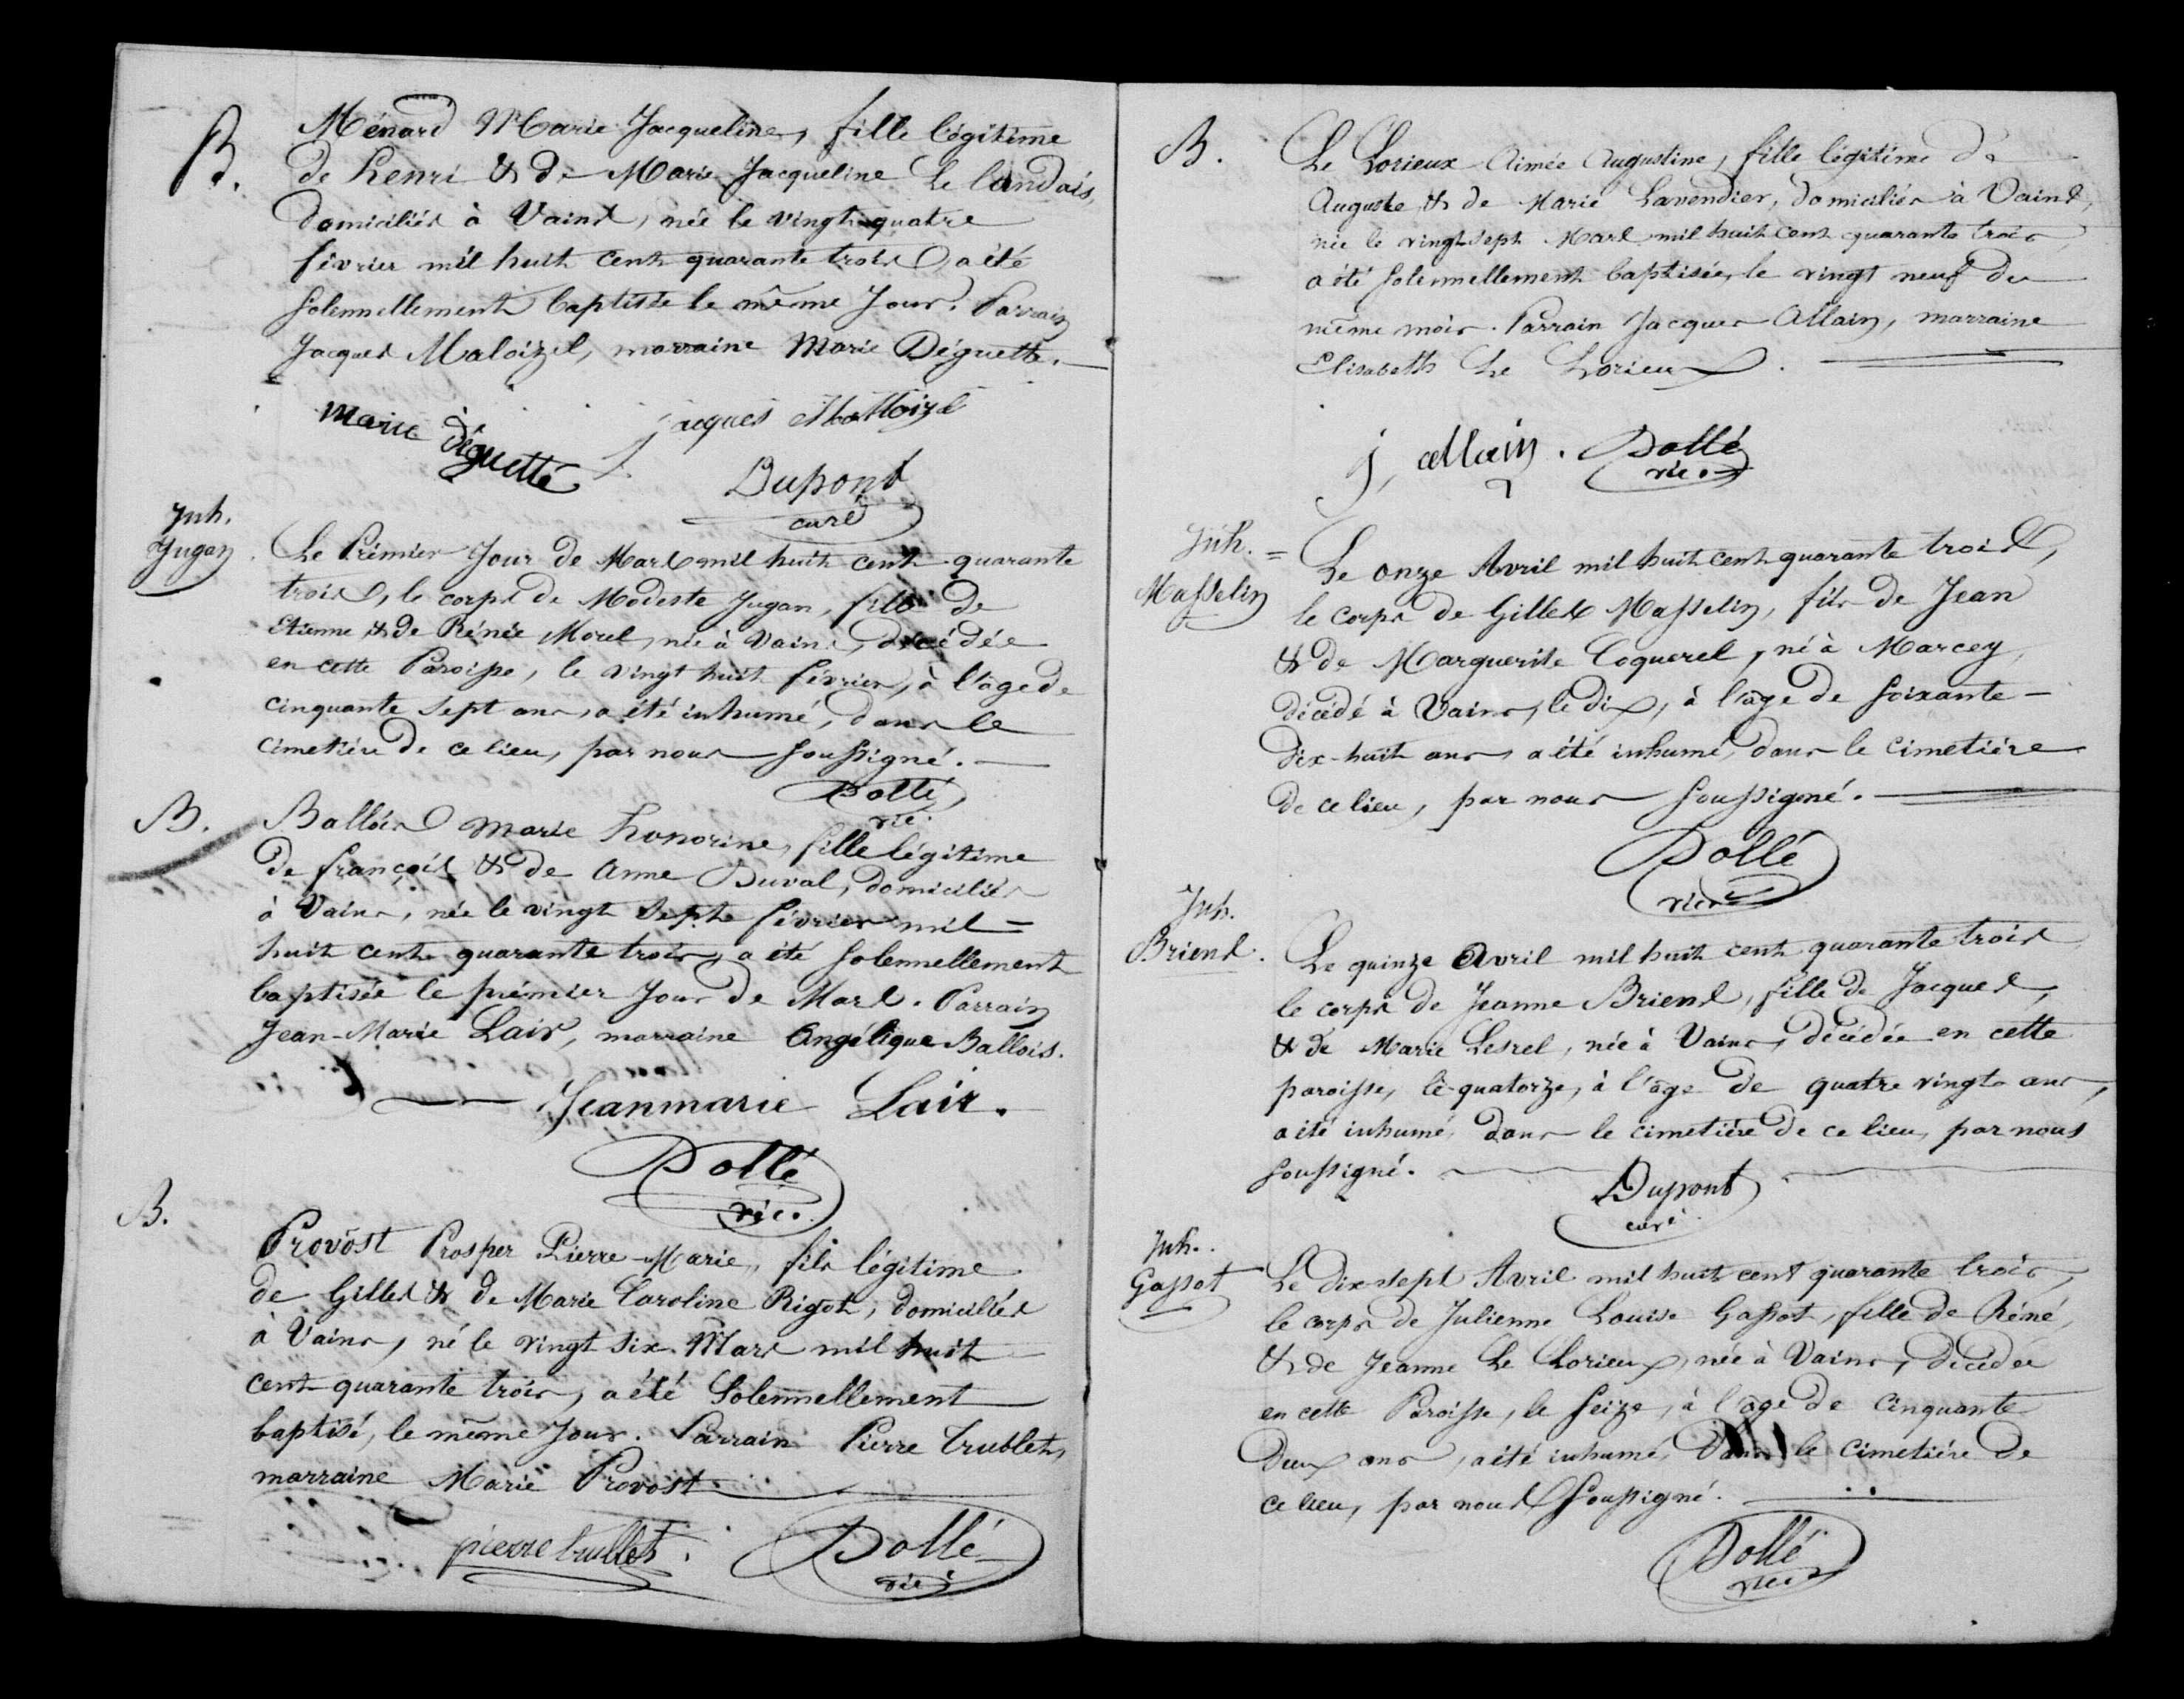 B.
Ménard Marie Jacqueline, fille légitime
de henri & de Marie Jacqueline Le landais,
domiciliés à Vains, née le vingt quatre
février mil huit cent quarante trois, a été
solennellement baptisée le même Jour. Parrain
Jacques Maloizel, marraine Marie Déguette.
marie déguette jacques Malloizel
Dupont
curé
Inh.
Jugan.
Le Prémier Jour de Mars mil huit cent quarante
trois, le corps de Modeste Jugan, fille de
Etienne & de Rénée Morel, née à Vains, décédée
en cette Paroisse, le vingt huit février, à l'age de
cinquante sept ans, a été inhumé, dans le
cimetière de ce lieu, par nous soussigné.
Dollé
vic.
B.
Ballois Marie honorine, fille légitime
de françois & de Anne Duval, domiciliés
à Vains, née le vingt sept février mil
huit cent quarante trois, a été solennellement
baptisée le prémier Jour de Mars. Parrain
Jean-Marie Lair, marraine Angélique Ballois.
Jeanmarie Lair.
Dollé
vic.
B.
Provôst Prosper Pierre-Marie, fils légitime
de Gilles & de Marie Caroline Rigot, domiciliés
à Vains, né le vingt six Mars mil huit
cent quarante trois, a été Solennellement
baptisé, le même Jour. Parrain Pierre Trublet,
marraine Marie Provost
pierre trublet. Dollé
vic.
B.
Le Lorieux Aimée Augustine, fille légitime de
Auguste & de Marie Lavendier, domiciliés à Vains,
née le vingt sept Mars mil huit cent quarante trois
a été solennellement baptisée, le vingt neuf du
même mois. Parrain Jacques Allain, marraine
Elisabeth Le Lorieux.
j, allain. Dollé
vic.
Inh. =
Masselin
Le onze Avril mil huit cent quarante trois,
le corps de Gilles Masselin, fils de Jean
& de Marguerite Coquerel, né à Marcey,
décédé à Vains, le dix, à l'age de soixante-
dix-huit ans, a été inhumé, dans le cimetière
de ce lieu, par nous soussigné.
Dollé
vic.
Inh.
Briens.
Le quinze Avril mil huit cent quarante trois
le corps de Jeanne Briens, fille de Jacques,
& de Marie Lesrel, née à Vains, décédée en cette
paroisse, le quatorze, à l'age de quatre vingts ans,
a été inhumé, dans le cimetière de ce lieu, par nous
soussigné.
Dupont
curé.
Inh.
Gassot
Le dix sept Avril mil huit cent quarante trois,
le corps de Julienne Louise Gassot, fille de Réné,
& de Jeanne Le Lorieux, née à Vains, décédée
en cette Paroisse, le seize, à l'age de cinquante
deux ans, a été inhumé, dans le cimetière de
ce lieu, par nous soussigné.
Dollé
vic.